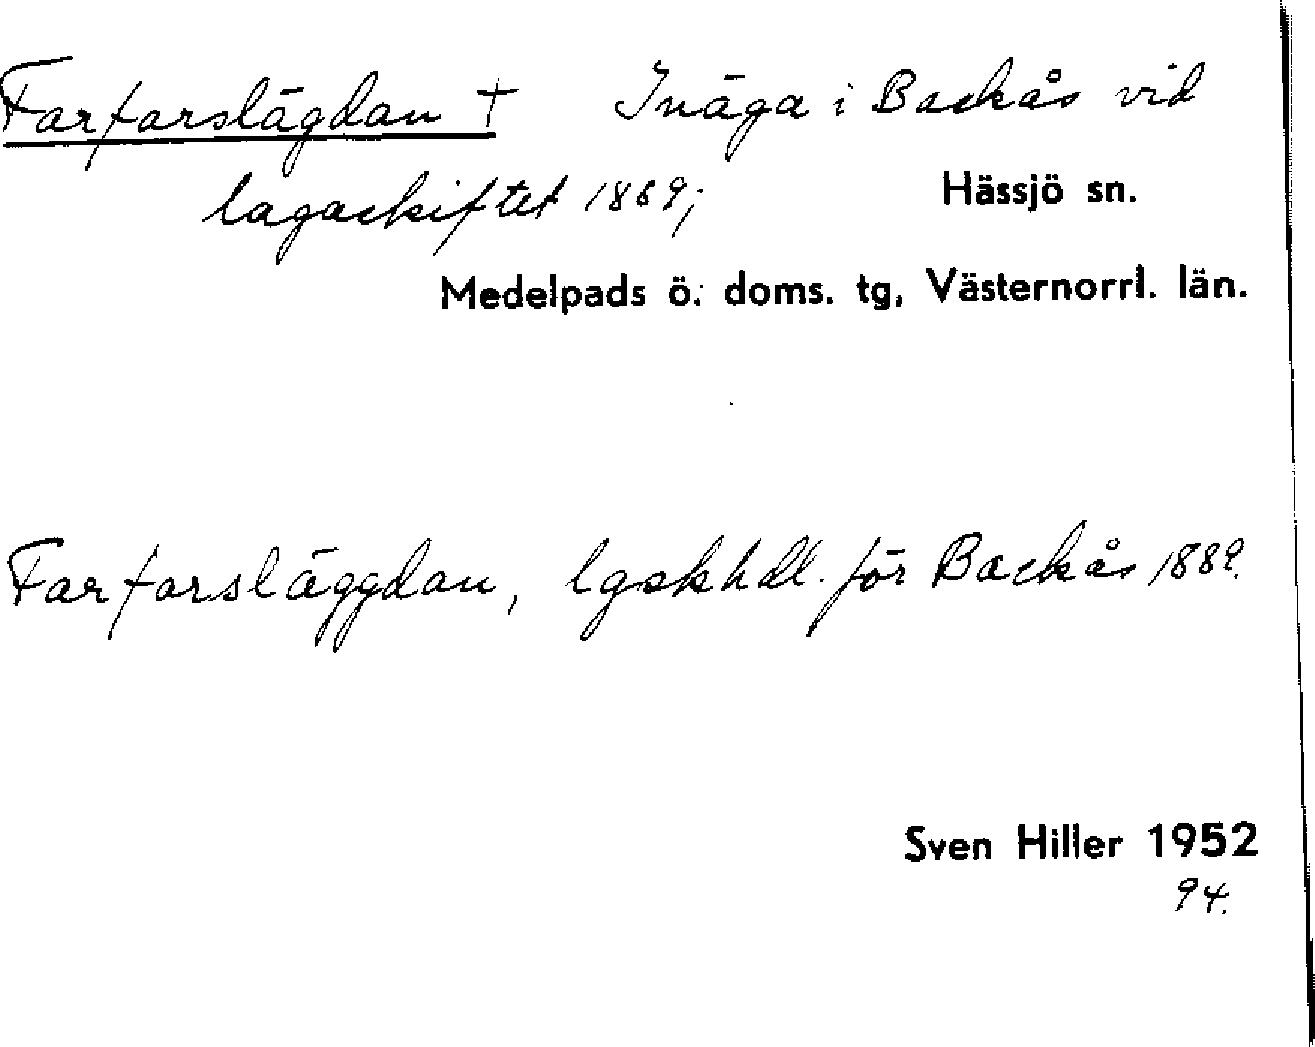 Farfarslägdan † Inäga i Backås vid
lagaskiftet 1889; Hässjö sn.
Medelpads ö. doms. tg, Västernorrl. län.
Farfarsläggdan, lgskhdl. för Backås 1889.
Sven Hiller 1952
94.